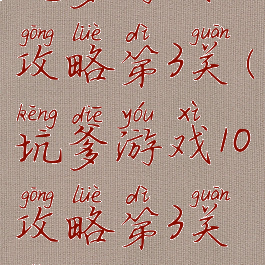 gōng lüè dì guān
攻略第3关(
kēng diē yóu xì
坑爹游戏10
gōng lüè dì guān
攻略第3关